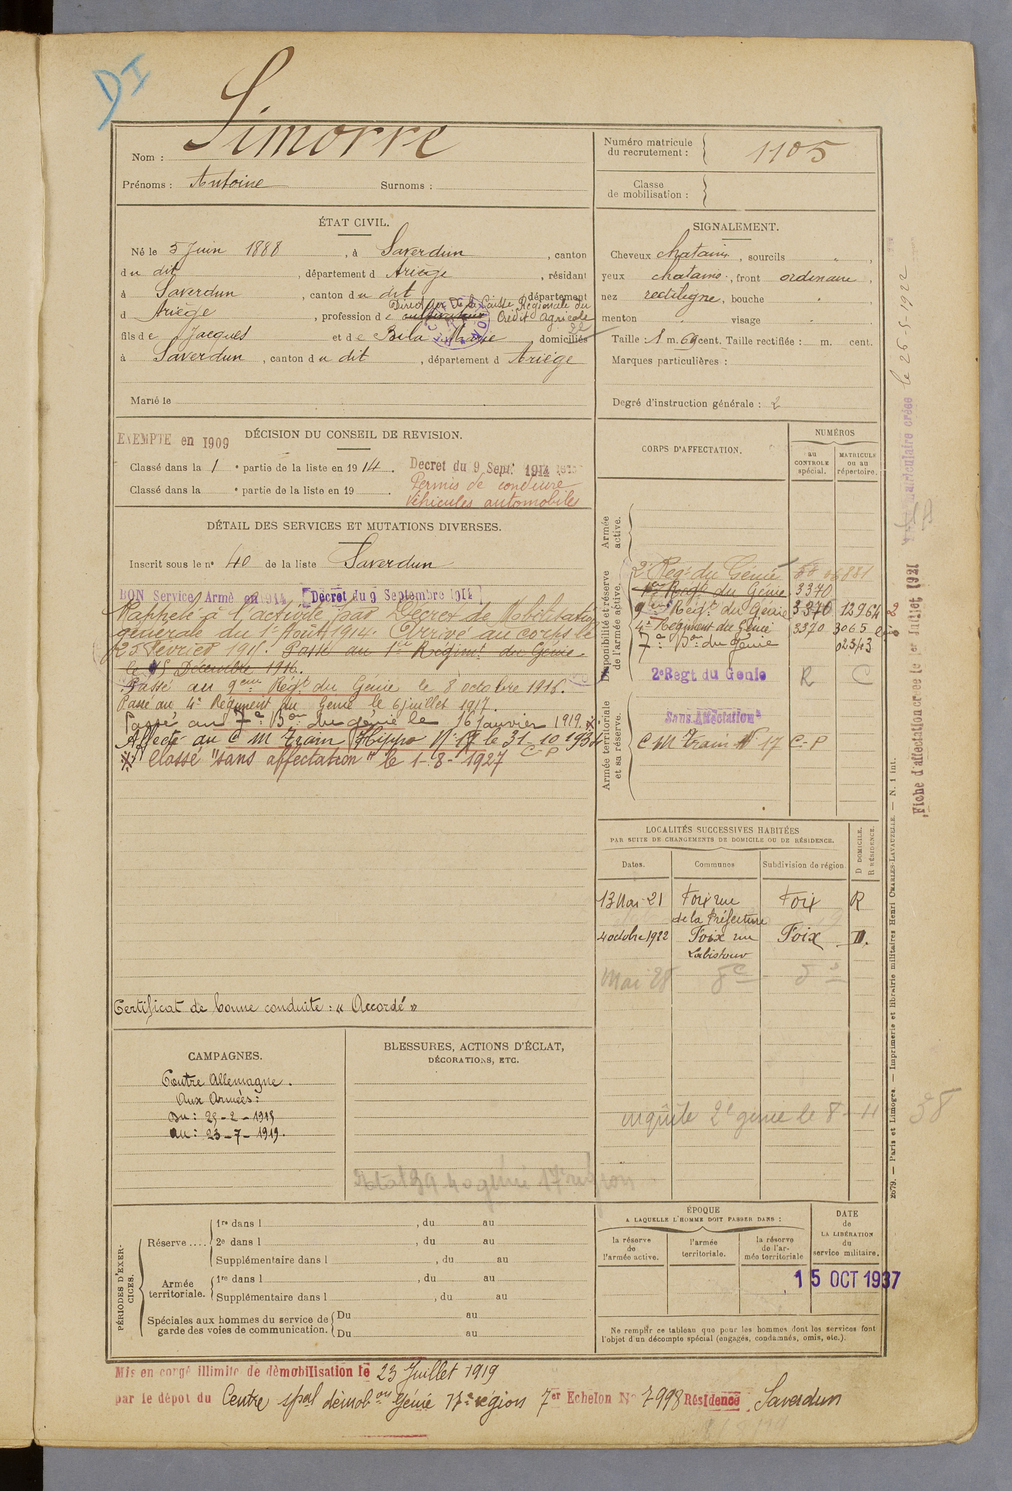 DI
Nom : Simorre
Prénoms : Antoine Surnoms :
Numéro matricule du recrutement : 1105
Classe de mobilisation :
ÉTAT CIVIL.
Né le 5 Juin 1888, à Saverdun, canton
du dit, département d Ariège, résidant
à Saverdun, canton du dit, département
d Ariège, profession de cultivateur
Directeur de la Caisse Régionale du
Crédit Agricole
fils de Jacques et de Bila Marie domiciliés
à Saverdun, canton du dit, département d Ariège
Marié le
SIGNALEMENT.
Cheveux chatains, sourcils
yeux chatains, front ordinaire,
nez rectiligne, bouche
menton visage
Taille : 1 m. 69 cent. Taille rectifiée : m. cent.
Marques particulières :
Degré d'instruction générale : 2
EXEMPTÉ en 1909
DÉCISION DU CONSEIL DE REVISION.
Classé dans la 1e partie de la liste en 1914.
Classé dans la e partie de la liste en 19
Décret du 9 Sept. 1914
Permis de conduire
Véhicules automobiles
DÉTAIL DES SERVICES ET MUTATIONS DIVERSES.
Inscrit sous le no 40 de la liste Saverdun
BON Service Armé en 1914 Décret du 9 Septembre 1914
Rappelé à l'activité par Décret de Mobilisation
générale du 1er Août 1914. Arrivé au corps le
25 février 1915. Passé au 1er Régimt du Génie
le 15 Décembre 1916.
Passé au 9eme Régt du Génie le 8 octobre 1916.
Passé au 4e Régiment du Génie le 6 juillet 1917.
Passé au 7e Bon du génie le 16 janvier 1919.
Affecté au C M Train Hippo No 17 le 31-10-1934
C-P
Classé "sans affectation" le 1-8-1927
Certificat de bonne conduite : « Accordé »
CORPS D'AFFECTATION.
NUMÉROS
au CONTROLE spécial.
MATRICULE ou au répertoire.
Armée active.
Disponibilité et réserve de l'armée active.
2e Régt du Génie
1er Régt du Génie 3370
9eme Régt du Génie 3370 12964
4e Régiment du Génie 3370 3065
7e Bon du génie 02543
2e Regt du Genie R C
Armée territoriale et sa réserve.
Sans Affectation
C M Train No 17 C-P
LOCALITÉS SUCCESSIVES HABITÉES
PAR SUITE DE CHANGEMENTS DE DOMICILE OU DE RÉSIDENCE.
Dates. Communes Subdivision de région D DOMICILE. R RÉSIDENCE.
13 Mai 21 Foix rue de la Préfecture Foix R
4 octobre 1922 Foix rue Labistour Foix D.
Mai 28 do do
enquête 2e génie le 8-11 38
CAMPAGNES.
Contre Allemagne.
Aux Armées :
Du : 25-2-1915
au : 23-7-1919.
BLESSURES, ACTIONS D'ÉCLAT,
DÉCORATIONS, ETC.
PÉRIODES D'EXERCICES.
Réserve .... 1re dans l , du au
2e dans l , du au
Supplémentaire dans l , du au
Armée territoriale. 1re dans l , du au
Supplémentaire dans l , du au
Spéciales aux hommes du service de garde des voies de communication. Du au
Du au
ÉPOQUE
A LAQUELLE L'HOMME DOIT PASSER DANS :
la réserve de l'armée active.
l'armée territoriale.
la réserve de l'armée territoriale
DATE de LA LIBÉRATION du service militaire.
15 OCT 1937
Ne remplir ce tableau que pour les hommes dont les services font
l'objet d'un décompte spécial (engagés, condamnés, omis, etc.).
Mis en congé illimité de démobilisation le 23 Juillet 1919
par le dépôt du Centre spal démobon Génie 17e région 7er Echelon No 7998 Résidence Saverdun
Fiche d'affectation créée le 1er Juillet 1921
matriculaire créée le 26-5-1922
2679. — Paris et Limoges. — Imprimerie et librairie militaires Henri CHARLES-LAVAUZELLE. — N. 1 int.